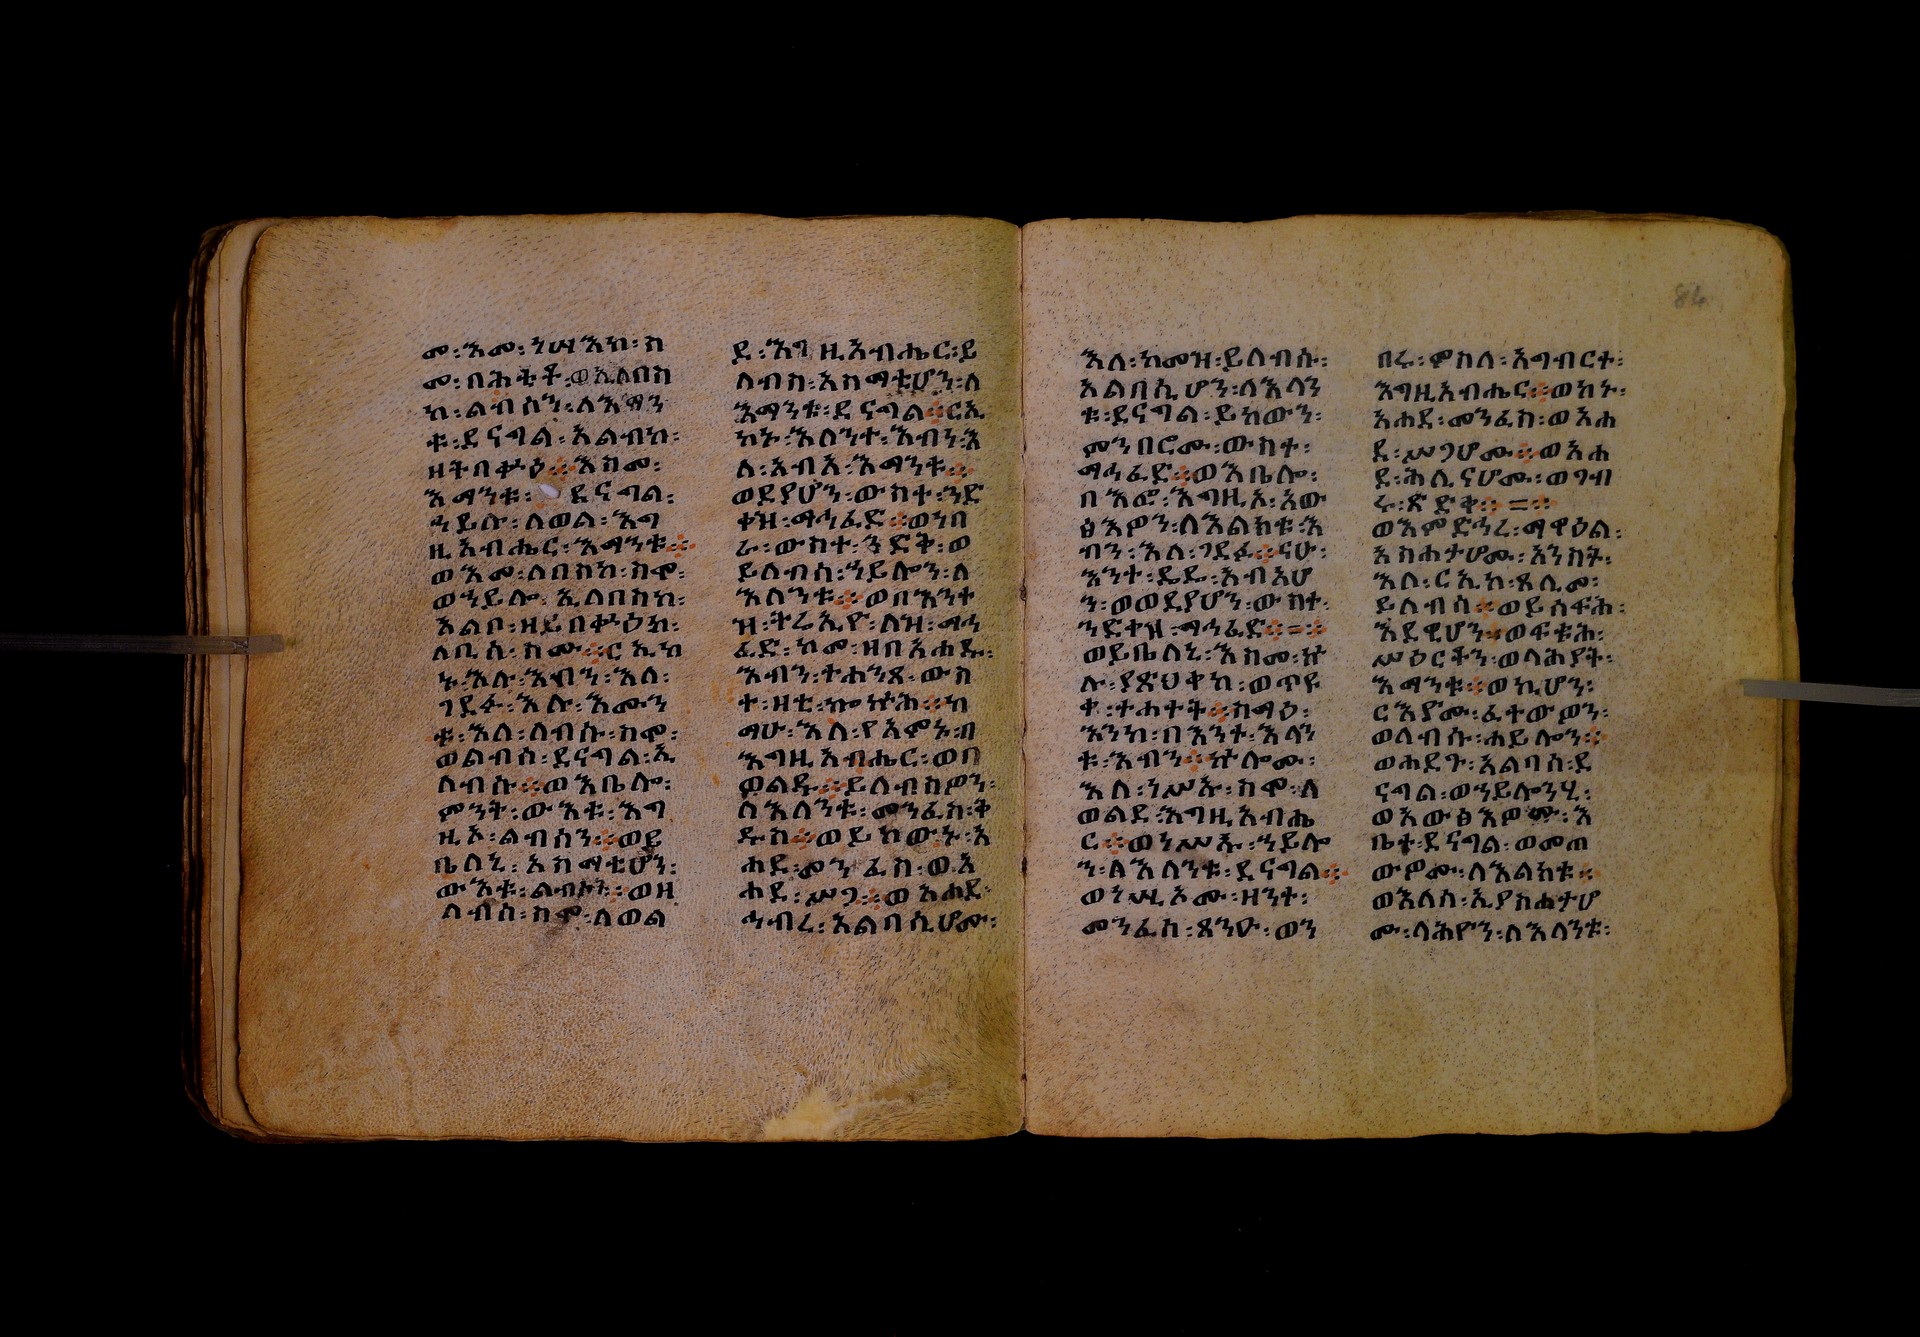 መ፡እመ፡ነሣእከ፡ስ
መ፡በሕቲቶ፡ወኢለበስ
ከ፡ልብሰን፡ለእማን
ቱ፡ደናግል፡አልብከ፡
ዘትበቍዕ፨እስመ፡
እማንቱ፡ ደናግል፡
ኀይሉ፡ለወል፡እግ
ዚአብሔር፡እማንቱ፨
ወእመ፡ለበስከ፡ስሞ፡
ወኀይሎ፡ኢለበስከ፡
አልቦ፡ዘይበቍዕከ፡
ለቢሰ፡ስሙ፨ርኢከ
ኑ፡እሉ፡እብን፡እለ፡
ገደፋ፡እሉ፡እሙን
ቱ፡እለ፡ለብሱ፡ስሞ፡
ወልብሰ፡ደናግል፡ኢ
ለብሱ፨ወእቤሎ፡
ምንት፡ውእቱ፡እግ
ዚኦ፡ልብሰን፨ወይ
ቤለኒ፡አስማቲሆን፡
ውእቱ፡ልብሶን፡ወዘ
ለብሰ፡ስሞ፡ለወል
ደ፡እግዚአብሔር፡ይ
ለብስ፡አስማቲሆን፡ለ
እማንቱ፡ደናግል፨ርኢ
ከኑ፡እሰንተ፡እብነ፡እ
ለ፡አብአ፡እማንቱ፨
ወደያሆን፡ውስተ፡ንድ
ቀዝ፡ማኅፈድ፨ወነበ
ራ፡ውስተ፡ንድቅ፡ወ
ይለብሰ፡ኀይሎን፡ለ
እሰንቱ፨ወበእንተ
ዝ፡ትሬኢዮ፡ለዝ፡ማኅ
ፈድ፡ከመ፡ዘበአሐዱ፡
እብን፡ተሐንጸ፡ውስ
ተ፡ዘቲ፡ኰኵሕ፨ከ
ማሁ፡እለ፡የአምኑ፡በ
እግዚአብሔር፡ወበ
ወልዱ፨ይለብስዎን፡
ለእለንቱ፡መንፈስ፡ቅ
ዱስ፨ወይከውኑ፡አ
ሐደ፡መንፈሰ፡ወአ
ሐደ፡ሥጋ፨ወአሐደ፡
ኅብረ፡አልባሲሆሙ፡
እለ፡ከመዝ፡ይለብሱ፡
አልበሲሆን፡ለእላን
ቱ፡ደናግል፡ይከውን፡
ምንበሮሙ፡ውስተ፡
ማኅፈድ፨ወእቤሎ፡
በእፎ፡እግዚኦ፡አው
ፅእዎን፡ለእልክቱ፡እ
ብን፡እለ፡ገደፈ፨ናሁ፡
እንተ፡ዴዴ፡አብአሆ
ን፡ወወደያሆን፡ውስተ፡
ንድቀዝ፡ማኅፈድ፨=፨
ወይቤለኒ፡እስመ፡ኵ
ሎ፡ያጽህቀከ፡ወጥዩ
ቀ፡ተሐተት፨ስማዕ፡
እንከ፡በእንተ፡እላን
ቱ፡እብን፨ኵሎሙ፡
እለ፡ነሥኡ፡ስሞ፡ለ
ወልደ፡እግዚአብሔ
ር፨ወነሥኡ፡ኀይሎ
ን፡ለእለንቱ፡ደናግል፨
ወነሢኦሙ፡ዘንተ፡
መንፈሰ፡ጸንዑ፡ወን
በሩ፡ምስለ፡አግብርተ፡
እግዚአብሔር፨ወከኑ፡
አሐደ፡መንፈሰ፡ወአሐ
ደ፡ሥጋሆሙ፨ወአሐ
ደ፡ሕሊናሆሙ፡ወገብ
ሩ፡ጽድቀ፨=፨
ወእምድኅረ፡ማዋዕል፡
አስሐታሆሙ፡አንስት፡
እለ፡ርኢከ፡ጸሊመ፡
ይለብሰ፨ወይሰፍሕ፡
እደዊሆን፨ወፍቱሕ፡
ሥዕርቶን፡ወላሕያት፡
እማንቱ፨ወኪሆን፡
ርእዮሙ፡ፈተውዎን፡
ወለብሱ፡ሐይሎን፨
ወሐደጉ፡አልባሰ፡ደ
ናግል፡ወኀይሎንሂ፡
ወአውፅእዎሙ፡እ
ቤተ፡ደናግል፡ወመጠ
ውዎሙ፡ለእልክቱ፨
ወእለሰ፡ኢያስሐታሆ
ሙ፡ላሕዮን፡ለእላንቱ፡